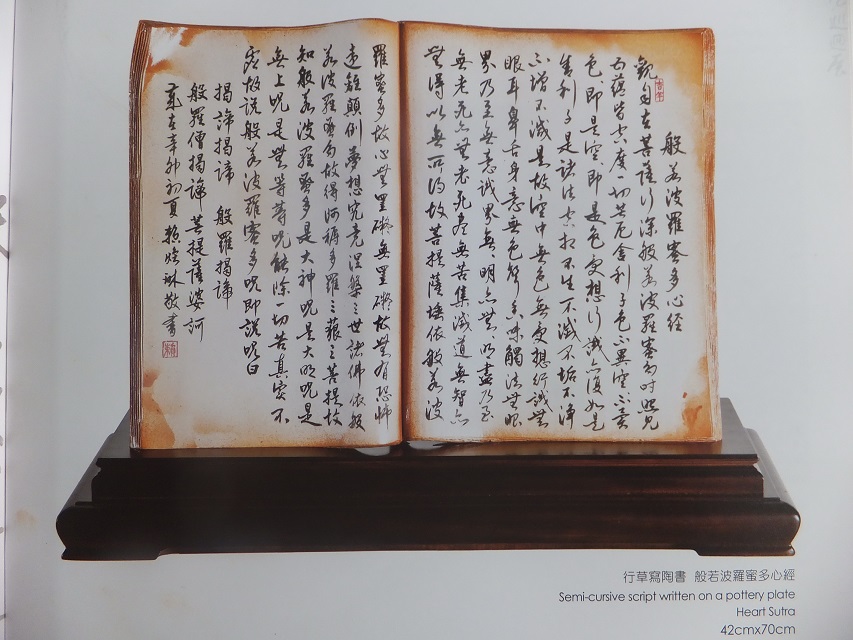 般若波羅蜜多心經
觀自在菩薩行深般若波羅蜜多時照見
五蘊皆空度一切苦厄舍利子色不異空空不異
色色即是空空即是色受想行識亦復如是
舍利子是諸法空相不生不滅不垢不淨
不增不減是故空中無色無受想行識無
眼耳鼻舌身意無色聲香味觸法無眼
界乃至無意識界無無明亦無無明盡乃至
無老死亦無老死盡無苦集滅道無智亦
無得以無所得故菩提薩埵依般若波
羅蜜多故心無罣礙無罣礙故無有恐怖
遠離顛倒夢想究竟涅槃三世諸佛依般
若波羅蜜多故得阿耨多羅三藐三菩提故
知般若波羅蜜多是大神咒是大明咒是
無上咒是無等等咒能除一切苦真實不
虛故說般若波羅蜜多咒即說咒曰
揭諦揭諦 般羅揭諦
般羅僧揭諦 菩提薩婆訶
歲在辛卯初夏 琳敬書
行草寫陶書 般若波羅蜜多心經
Semi-cursive script written on a pottery plate
Heart Sutra
42cmx70cm